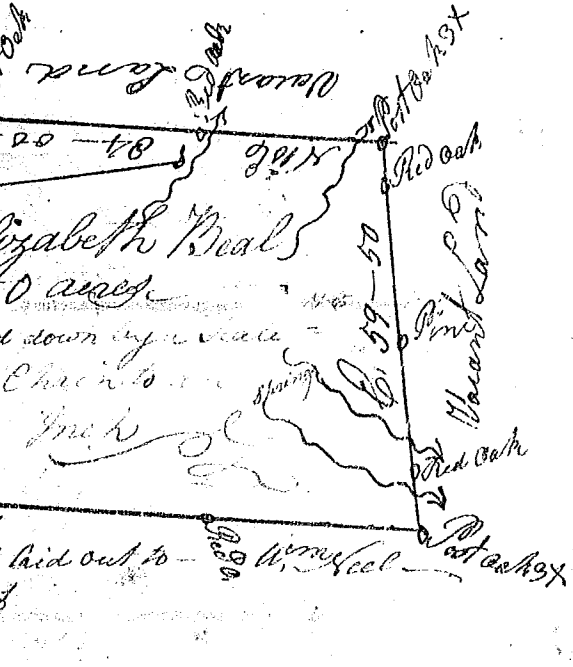 Oak
Vacant Land
Red oak
Post Oak 3X
84—00
N 16 E
Red oak
Elizabeth Beals
0 acres
d down by a scale
Chain to an
Inch
E. 59—50
Pine
Vacant Land
Springs
Red oak
Post oak 3X
Red O
laid out to — Wm Neel —